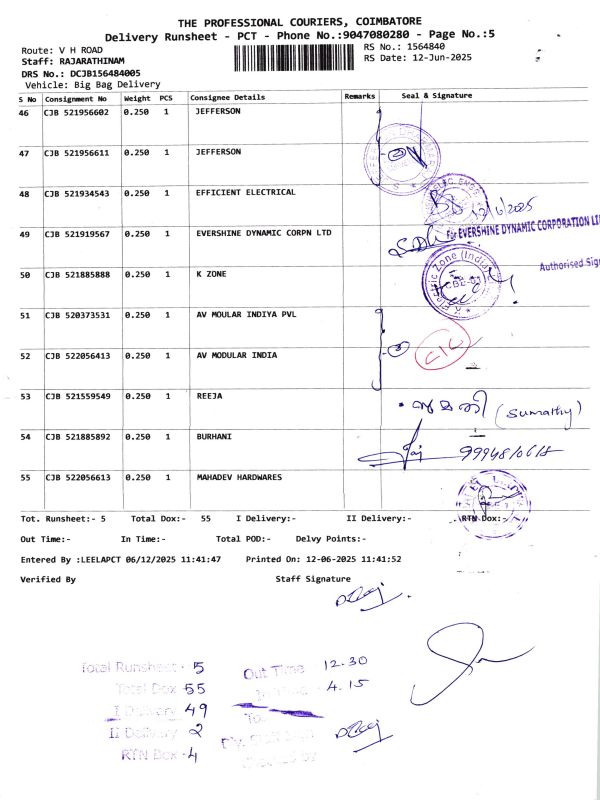 THE PROFESSIONAL COURIERS, COIMBATORE
Delivery Runsheet - PCT - Phone No.:9047080280 - Page No.:5
Route: V H ROAD
RS No.: 1564840
Staff: RAJARATHINAM
RS Date: 12-Jun-2025
DRS No.: DCJB156484005
Vehicle: Big Bag Delivery
S No Consignment No Weight PCS Consignee Details Remarks Seal & Signature
46 CJB 521956602 0.250 1 JEFFERSON
47 CJB 521956611 0.250 1 JEFFERSON
48 CJB 521934543 0.250 1 EFFICIENT ELECTRICAL
12/6/2025
49 CJB 521919567 0.250 1 EVERSHINE DYNAMIC CORPN LTD
For EVERSHINE DYNAMIC CORPORATION LI
Authorised Sig
50 CJB 521885888 0.250 1 K ZONE
Electric Zone (India)
51 CJB 520373531 0.250 1 AV MOULAR INDIYA PVL
52 CJB 522056413 0.250 1 AV MODULAR INDIA
53 CJB 521559549 0.250 1 REEJA
(Sumathy)
54 CJB 521885892 0.250 1 BURHANI
55 CJB 522056613 0.250 1 MAHADEV HARDWARES
Tot. Runsheet:- 5 Total Dox:- 55 I Delivery:- II Delivery:- RTN Dox:-
Out Time:- In Time:- Total POD:- Delvy Points:-
Entered By :LEELAPCT 06/12/2025 11:41:47 Printed On: 12-06-2025 11:41:52
Verified By Staff Signature
Total Runsheet - 5
Total Dox - 55
I Delivery 49
II Delivery - 2
RTN Dox - 4
Out Time 12.30
4.15